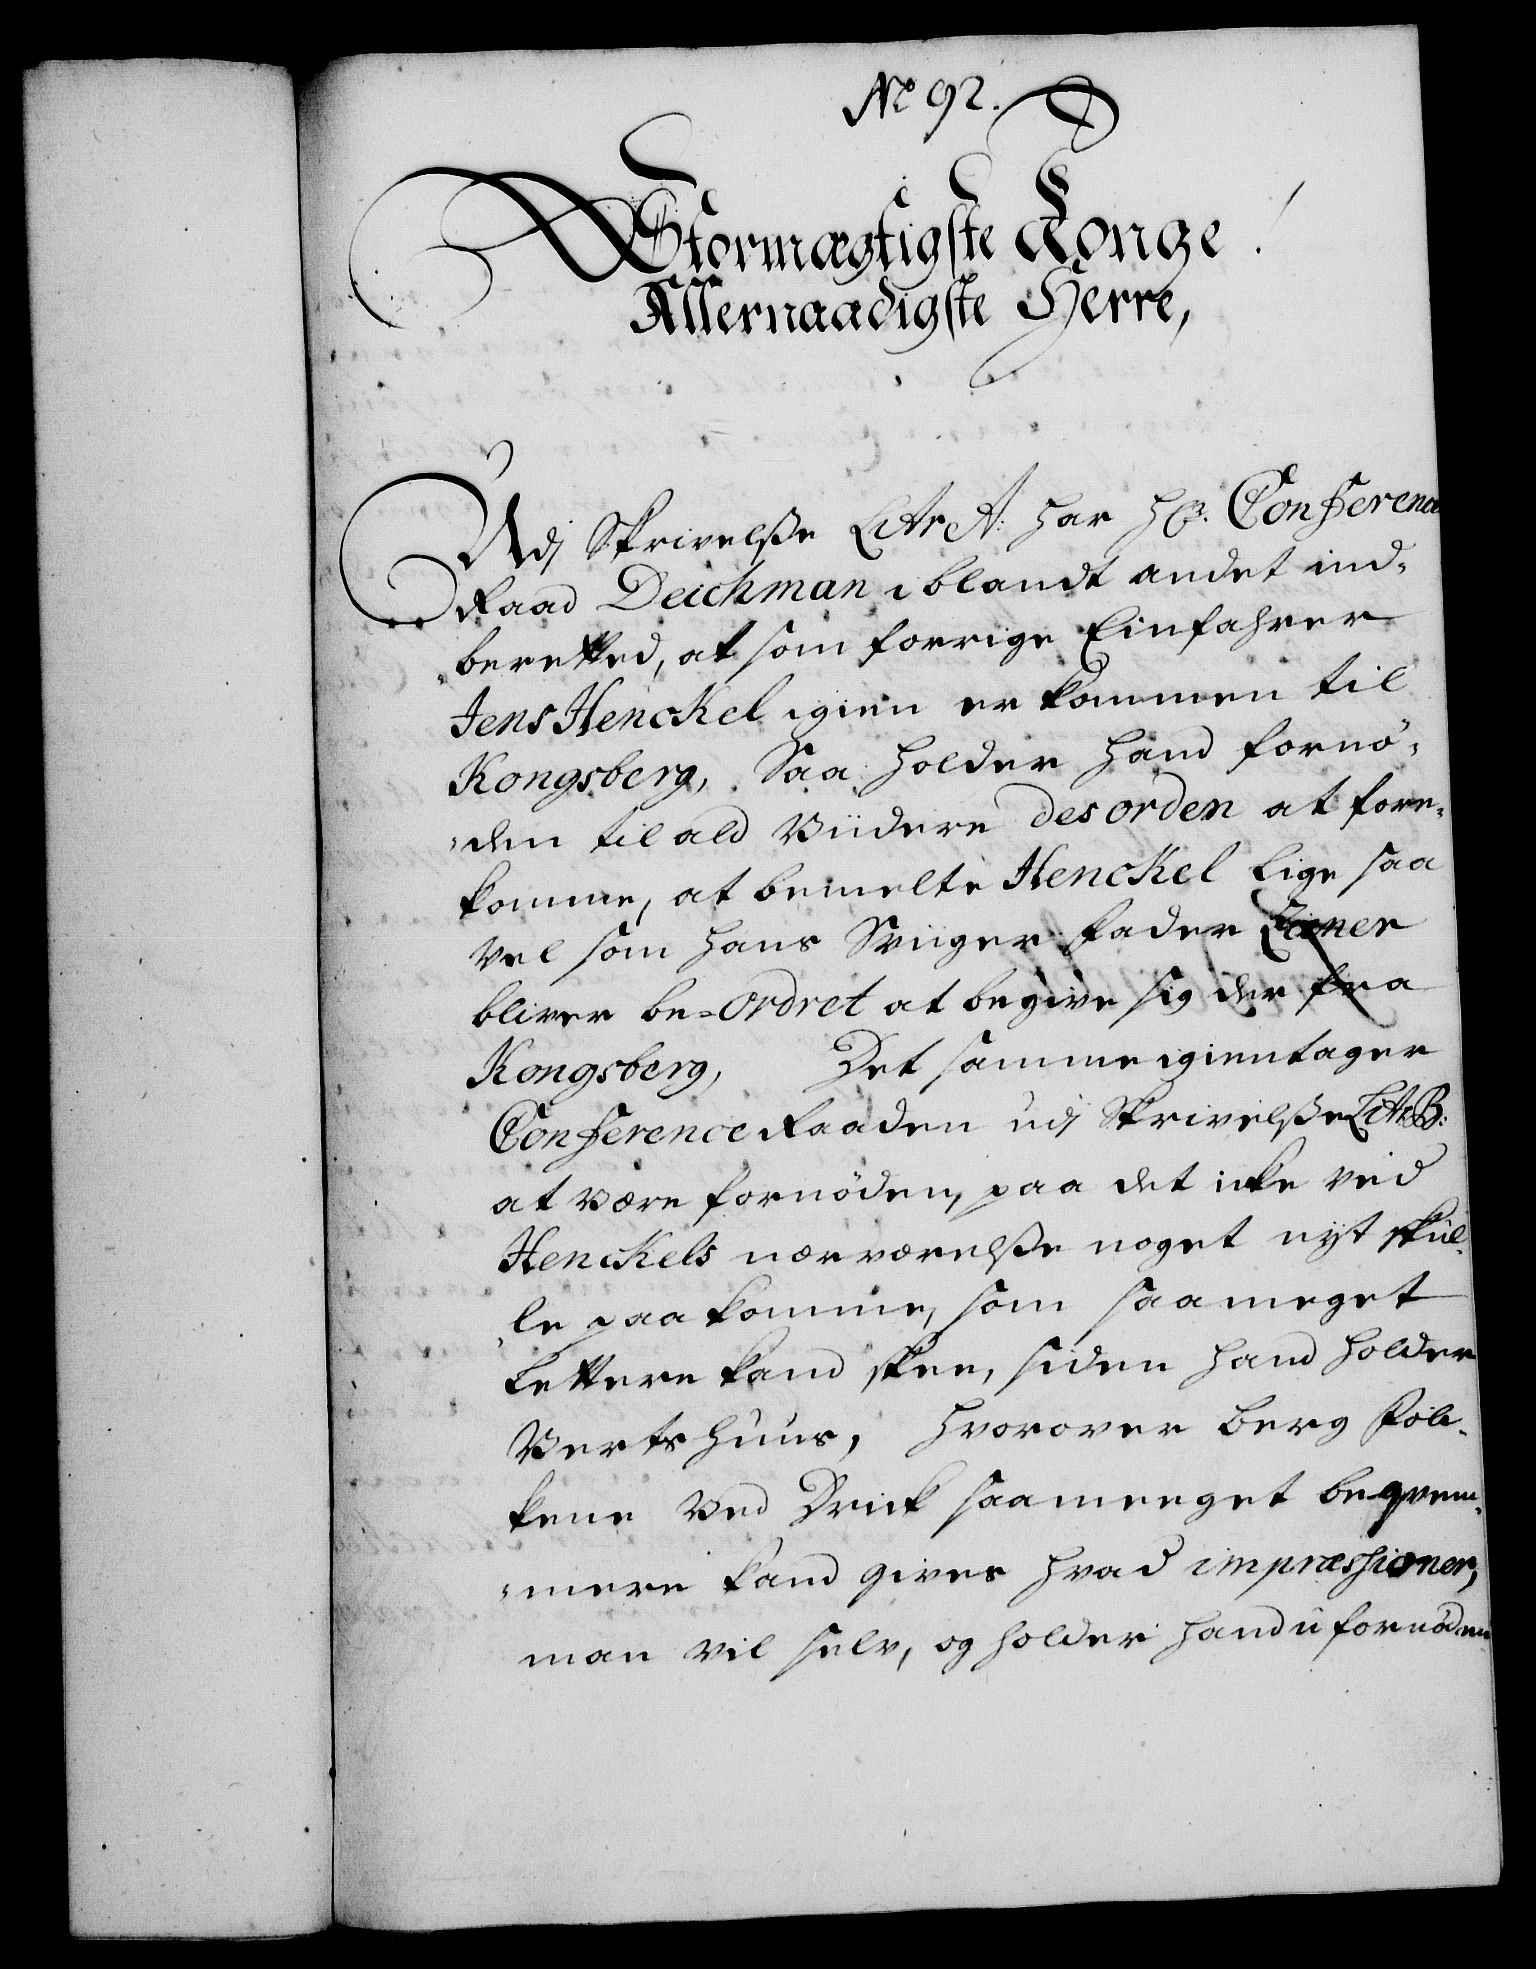 No 92.
Stormægtigste Konge!
Allernaadigste Herre,
Udj Skrivelsse Litr A: har Hr. Conference
Raad Deichman iblandt andet ind-
beretted, at som forrige Einfahrer
Jens Henckel igien er kommen til
Kongsberg, Saa holder hand fornø-
den til ald Viidere desorden at fore-
komme, at bemelte Henckel lige saa
vel som hans Sviger fader
bliver be-ordret at begive sig der fra
Kongsberg, Det samme igientager
Conference Raaden udj Skrivelsse Litr B:
at være fornøden, paa det icke ved
Henckels nærværelsse noget nyt skul-
le paakomme, som saameget
lettere kand skee, siden hand holder
Vertshuus, hvorover Berg Fol-
kene ved Drick saameeget beqvem-
mere kand gives hvad impræssioner,
man vil selv, og holder hand u fornøden